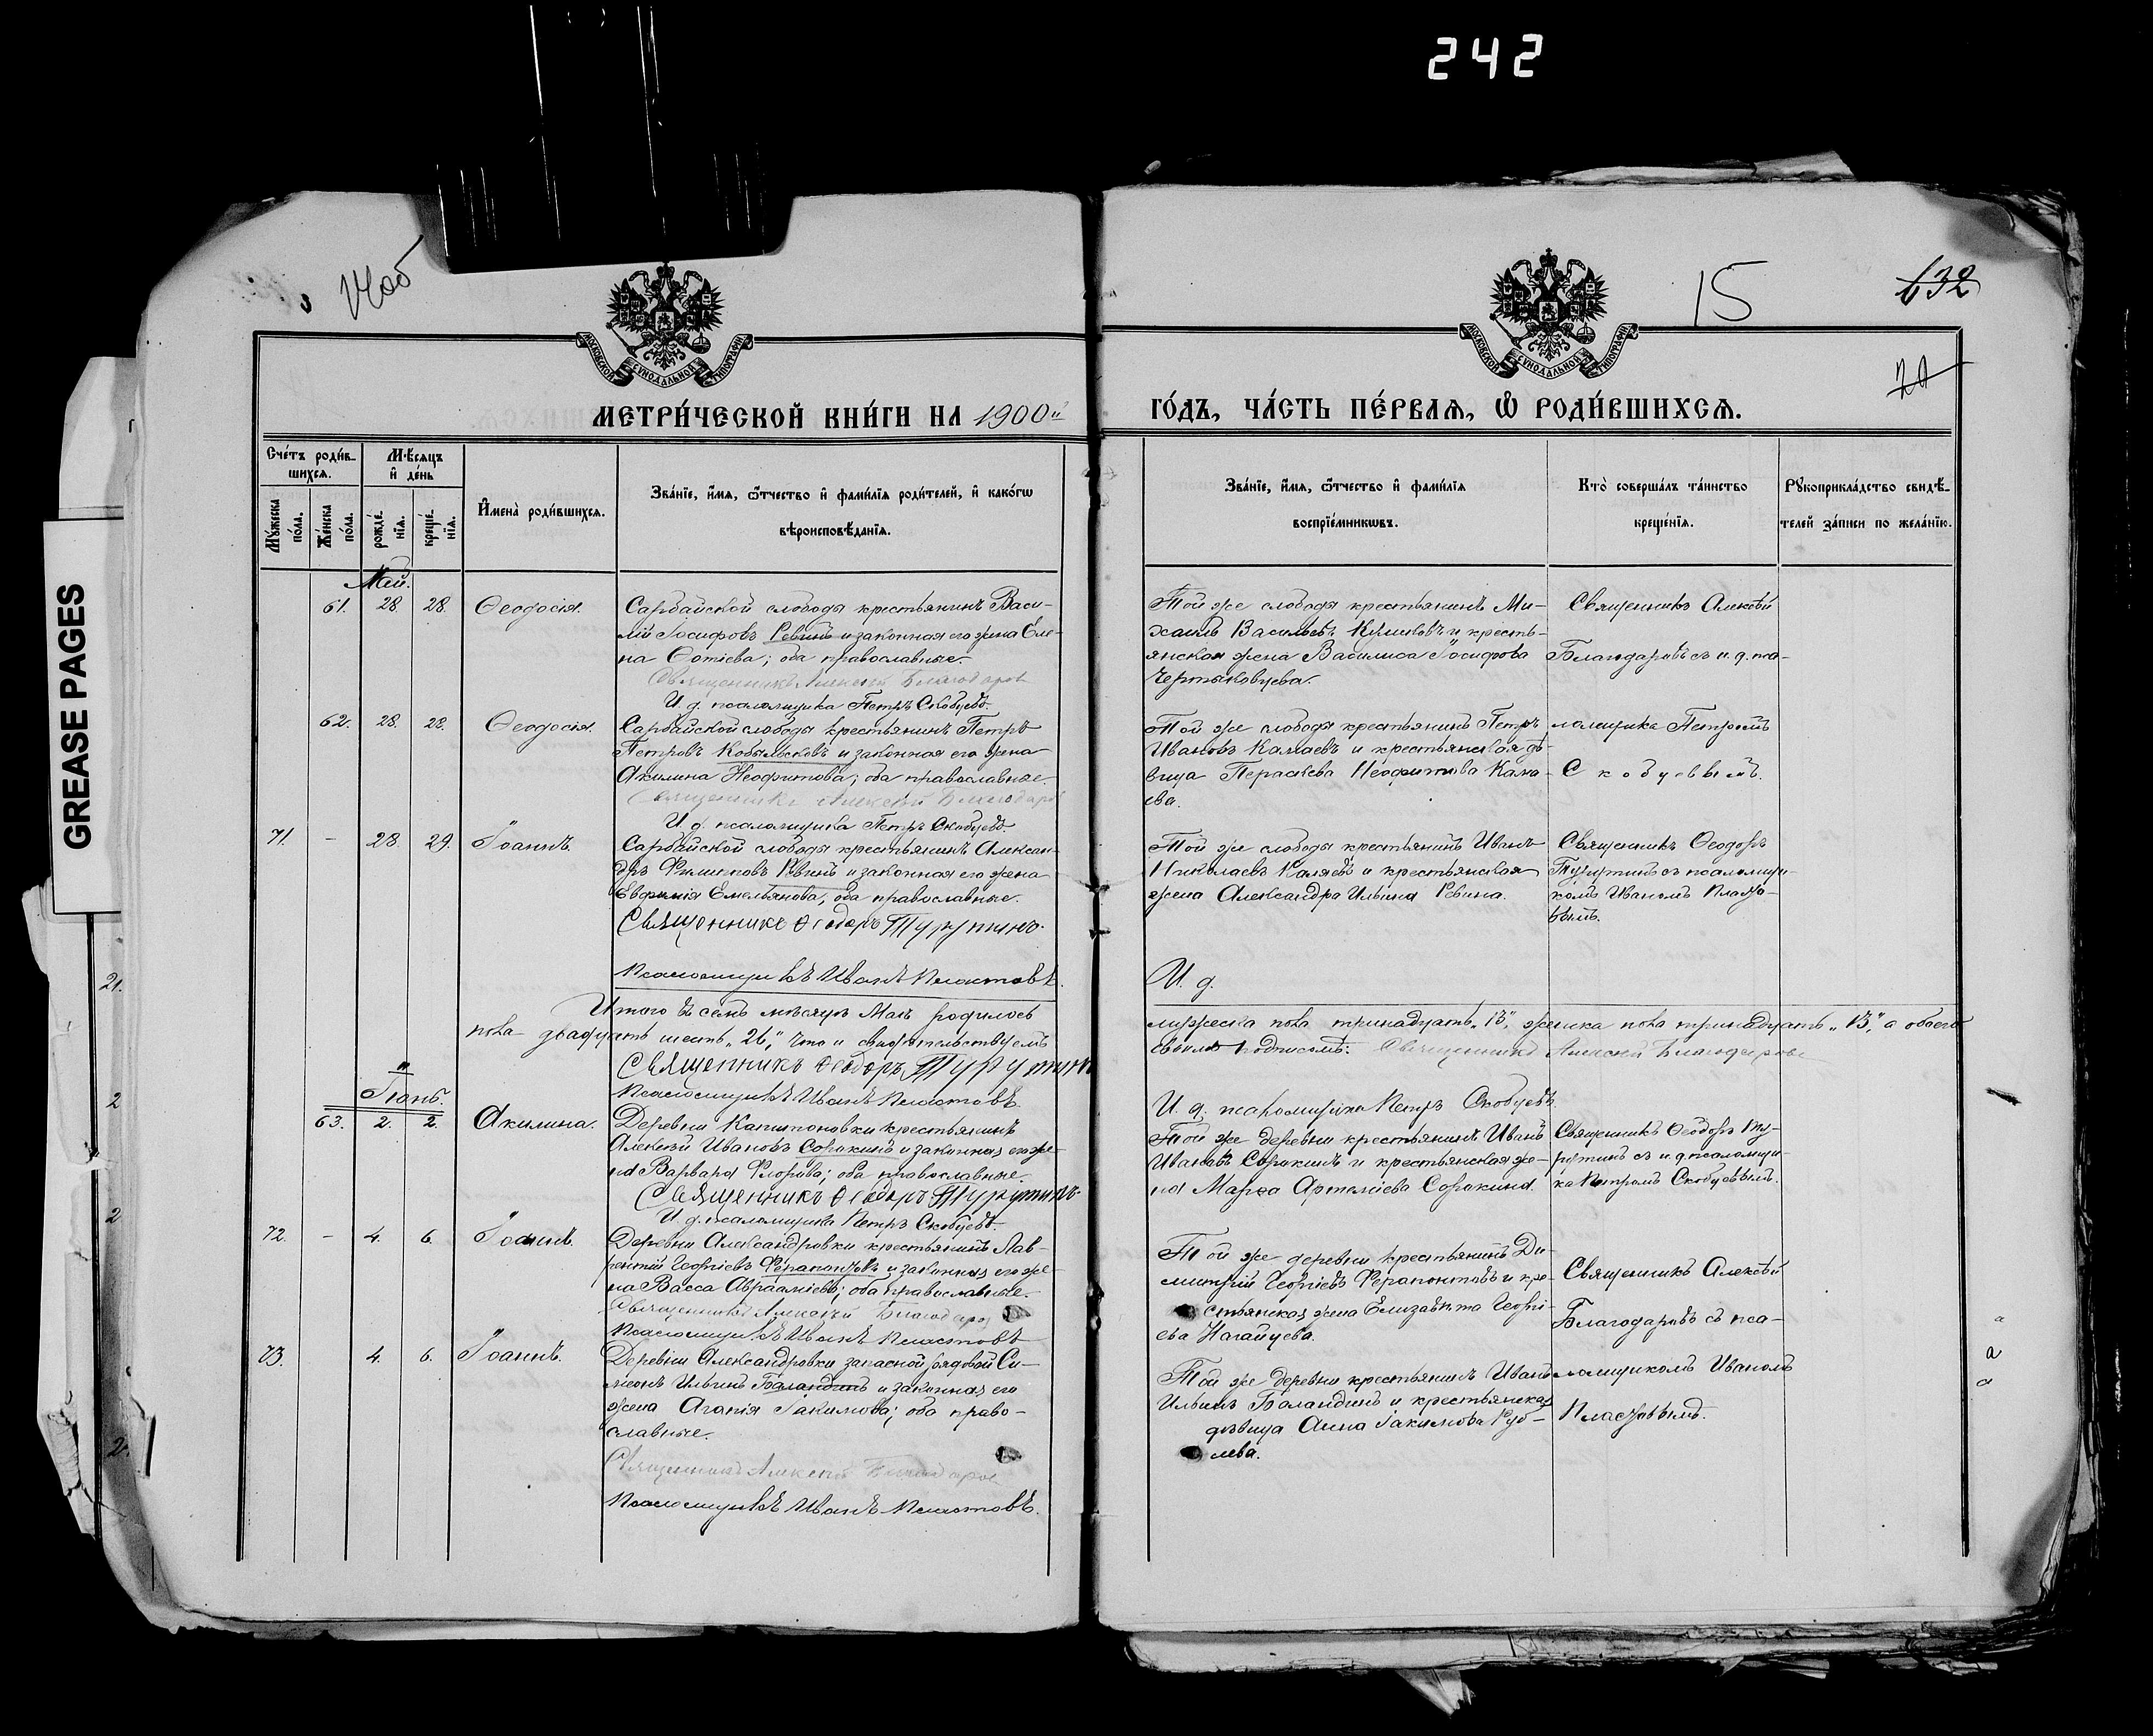 242
GREASE PAGES
15
632
МОСКОВСКОЙ СѴНОДАЛЬНОЙ ТИПОГРАФІИ
МОСКОВСКОЙ СѴНОДАЛЬНОЙ ТИПОГРАФІИ
МЕТРИ́ЧЕСКОЙ КНИ́ГИ НА 1900й
ГО́ДЪ, ЧА́СТЬ ПЕ́РВАѦ, Ѡ҆ РОДИ́ВШИХСѦ.
Сче́тъ роди́в-
шихсѧ.
Му́жеска по́ла.
Же́нска по́ла.
Мѣ́сяцъ
и҆ де́нь
рожде́нїѧ.
креще́нїѧ.
И҆мена̀ роди́вшихсѧ.
Зва́нїе, и҆́мѧ, ѻ҆́тчество и҆ фами́лїѧ роди́телей, и҆ како́гѡ
вѣроисповѣ́данїѧ.
Зва́нїе, и҆́мѧ, ѻ҆́тчество и҆ фами́лїѧ
воспрїе́мникѡвъ.
Кто̀ соверша́лъ та́инство
креще́нїѧ.
Рꙋкоприкла́дство свидѣ́-
телей за́писи по жела́нїю.
Май.
61. 28 28. Ѳеодосія. Сарбайской слободы крестьянинъ Васи-
лій Іосифовъ Ревинъ и законная его жена Еле-
на Фотіева; оба православные.
Священникъ Алексій Благодаровъ
И. д. псаломщика Петръ Скобцевъ.
Той же слободы крестьянинъ Ми-
хаилъ Васильевъ Куликовъ и кресть-
янская жена Василиса Іосифова
Чертыковцева.
Священникъ Алексѣй
Благодаровъ съ и. д. пса-
62. 28. 28. Ѳеодосія. Сарбайской слободы крестьянинъ Петръ
Петровъ Кобылосковъ и законная его жена
Акилина Неофитова; оба православные
Священникъ Алексій Благодаровъ
И. д. псаломщика Петръ Скобцевъ.
Той же слободы крестьянинъ Петръ
Ивановъ Камаевъ и крестьянская дѣ-
вица Параскева Неофитова Кама-
ева.
ломщика Петромъ
Скобцевымъ.
71. - 28. 29. Іоаннъ. Сарбайской слободы крестьянинъ Алексан-
дръ Филиповъ Ревинъ и законная его жена
Евфимія Емельянова; оба православные.
Священникъ Ѳеодоръ Турутинъ.
Псаломщикъ Иванъ Пластовъ.
Той же слободы крестьянинъ Иванъ
Николаевъ Каляевъ и крестьянская
жена Александра Ильина Ревина.
Священникъ Ѳеодоръ
Турутинъ съ псаломщи-
комъ Иваномъ Пласто-
вымъ.
И. д.
Итого въ семъ мѣсяцѣ Маѣ родилось
мужеска пола тринадцать „13", женска пола тринадцать „13", а обоего
пола двадцать шесть „26", что и свидѣтельствуемъ
своимъ подписомъ: Священникъ Алексій Благодаровъ
Священникъ Ѳеодоръ Турутинъ
Псаломщикъ Иванъ Пластовъ.
И. д. псаломщика Петръ Скобцевъ.
Іюнь.
63. 2. 2. Акилина. Деревни Капитоновки крестьянинъ
Алексѣй Ивановъ Сорокинъ и законная его же-
на Варвара Флорова; оба православные.
Священникъ Ѳеодоръ Турутинъ.
И. д. псаломщика Петръ Скобцевъ.
Той же деревни крестьянинъ Иванъ
Ивановъ Сорокинъ и крестьянская же-
на Марѳа Артеміева Сорокина.
Священникъ Ѳеодоръ Ту-
рутинъ съ и. д. псаломщи-
ка Петромъ Скобцевымъ.
72. - 4. 6. Іоаннъ. Деревни Александровки крестьянинъ Лав-
рентій Георгіевъ Ферапонтовъ и законная его же-
на Васса Авраамієва; оба православные.
Священникъ Алексій Благодаровъ
Псаломщикъ Иванъ Пластовъ
Той же деревни крестьянинъ Ди-
митрій Георгіевъ Ферапонтовъ и кре-
стьянская жена Елизавета Георгі-
ева Нагайцева.
Священникъ Алексѣй
Благодаровъ съ пса-
73. 4. 6. Іоаннъ. Деревни Александровки запасной рядовой Си-
меонъ Ильинъ Баландинъ и законная его
жена Агапія Іакимова; оба право-
славные.
Священникъ Алексій Благодаровъ
Псаломщикъ Иванъ Пластовъ.
Той же деревни крестьянинъ Иванъ
Ильинъ Баландинъ и крестьянская
дѣвица Анна Іакимова Руб-
лева.
ломщикомъ Иваномъ
Пластовымъ.